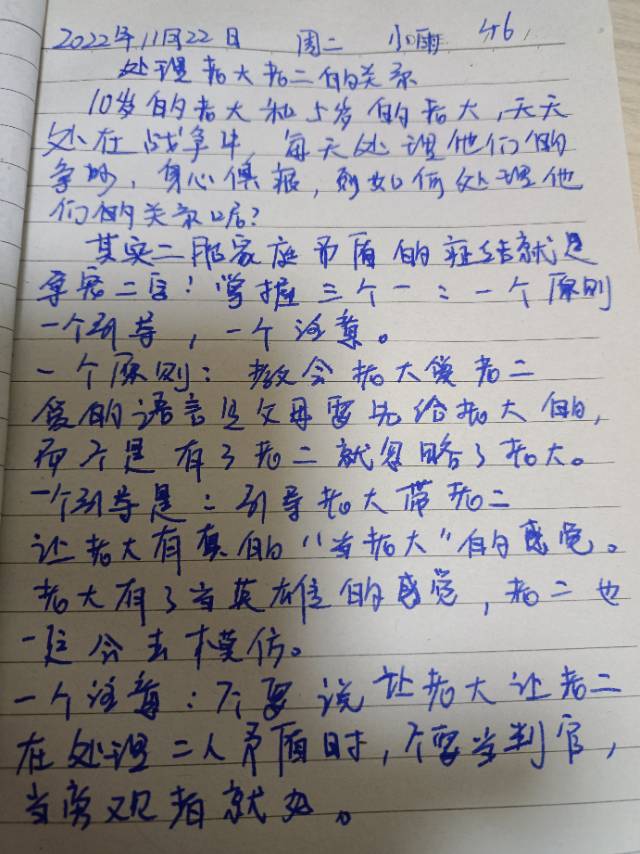 2022年11月22日 周二 小雨 46
处理老大老二的关系
10岁的老大和5岁的老大,天天
处在战争中,每天处理他们的
争吵,身心俱报,到如何处理他
们的关系呢?
其实二胎家庭矛盾的症结就是
争宠二字!掌握三个一:一个原则
一个引导,一个注意。
一个原则:教会老大爱老二
爱的语言是父母要先给老大的,
而不是有了老二就忽略了老大。
一个引导是:引导老大带老二
让老大有真的“当老大”的感觉。
老大有了当英雄的感觉,老二也
一定会去模仿。
一个注意:不要说让老大让老二
在处理二人矛盾时,不要当判官,
当旁观者就好。